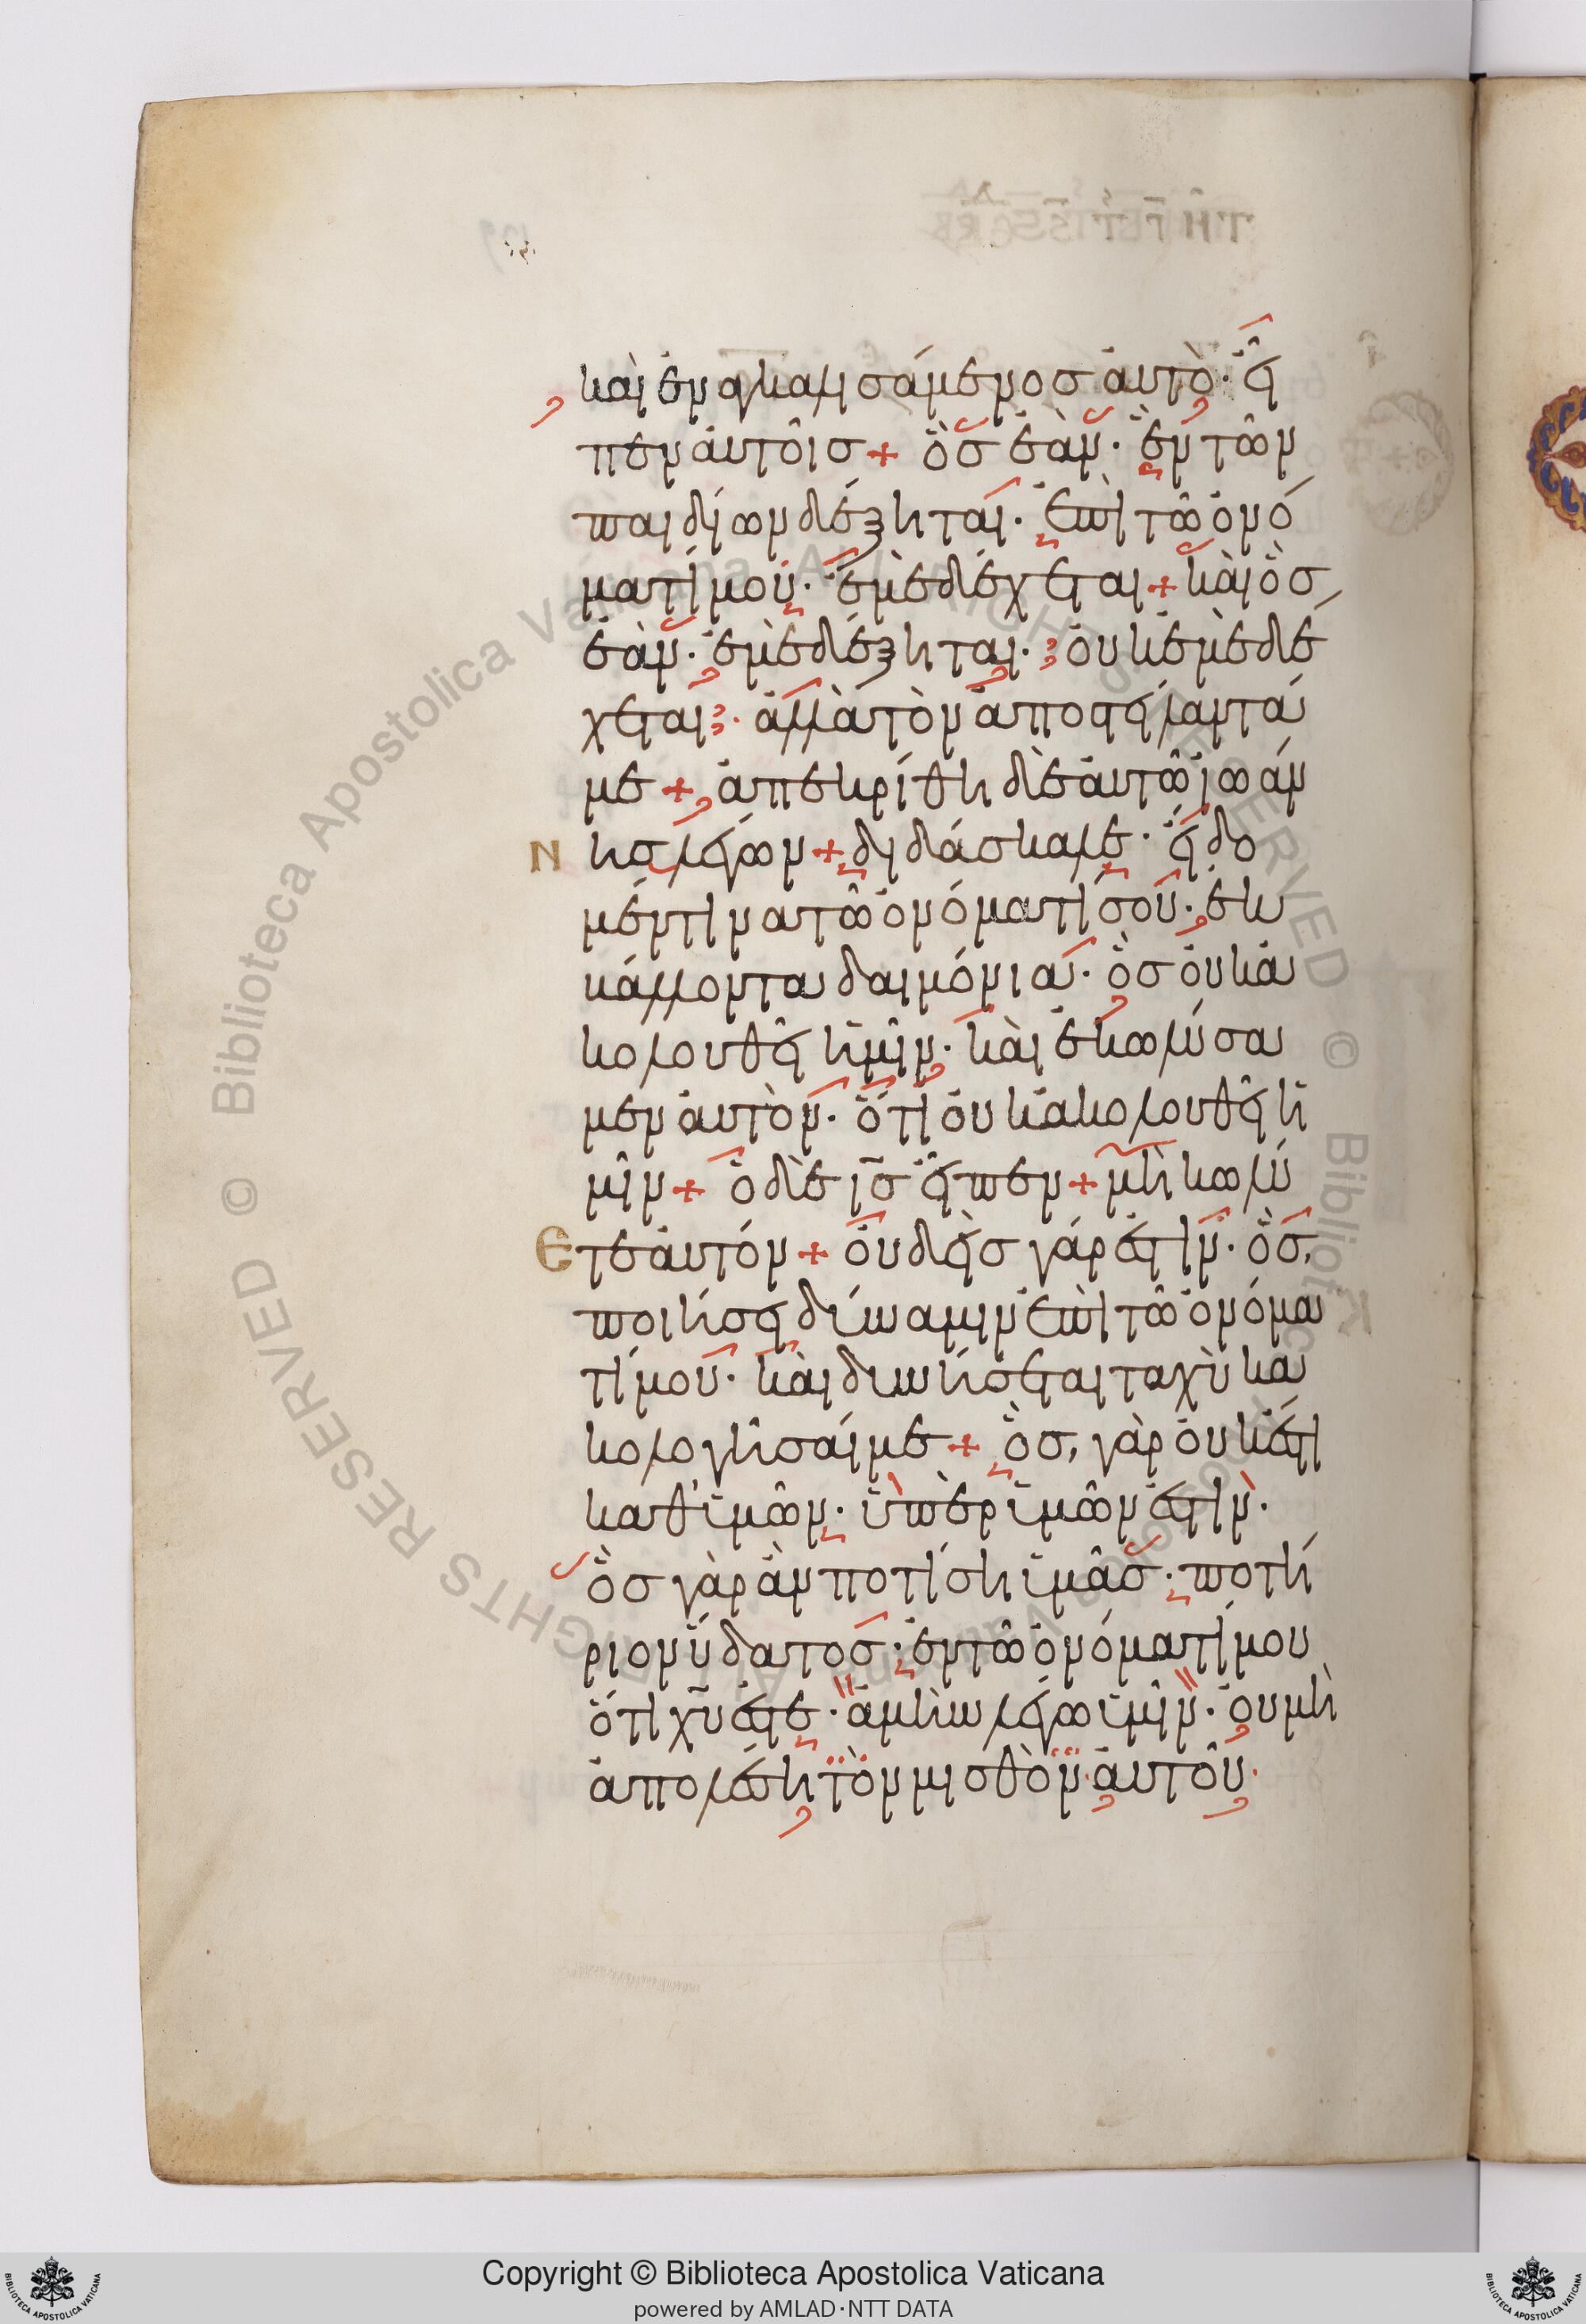 καὶ ἐναγκαλισάμενοσ αὐτὸ· εἶ
πεν αὐτοῖσ + ὃσ ἐὰν· ἓν τῶν
παιδίων δέξηται· ἐπὶ τῶ ὀνό
ματί μου· ἐμὲ δέχεται + καὶ ὃσ
ἐὰν· ἐμὲ δέξηται· οὐκ ἐμὲ δέ
χεται· ἀλλὰ τὸν ἀποστείλαντά
με + ἀπεκρίθη δὲ αὐτῶ ἰωάν
νησ λέγων + διδάσκαλε· εἴδο
μέν τινα τῶ ὀνόματί σου· ἐκ
βάλλοντα δαιμόνια· ὃσ οὐκ ἀ
κολουθεῖ ἡμῖν· καὶ ἐκωλύσα
μεν αὐτὸν· ὅτι οὐκ ἀκολουθεῖ ἡ
μῖν + ὁ δὲ ι̅σ̅ εἶπεν + μὴ κωλύ
ετε αὐτόν + οὐδεὶσ γάρ ἐστιν· ὃσ
ποιήσει δύναμιν ἐπὶ τῶ ὀνόμα
τί μου· καὶ δυνήσεται ταχὺ κα
κολογῆσαί με + ὃσ γὰρ οὐκ ἔστι
καθ' ὑμῶν· ὑπὲρ ὑμῶν ἐστιν·
ὃσ γὰρ ἂν ποτίση ὑμᾶσ· ποτή
ριον ὕδατοσ· ἐν τῶ ὀνόματί μου
ὅτι χ̅υ̅ ἐστε· ἀμὴν λέγω ὑμῖν· οὐ μὴ
ἀπολέση τὸν μισθὸν αὐτοῦ·
Copyright © Biblioteca Apostolica Vaticana
powered by AMLAD·NTT DATA